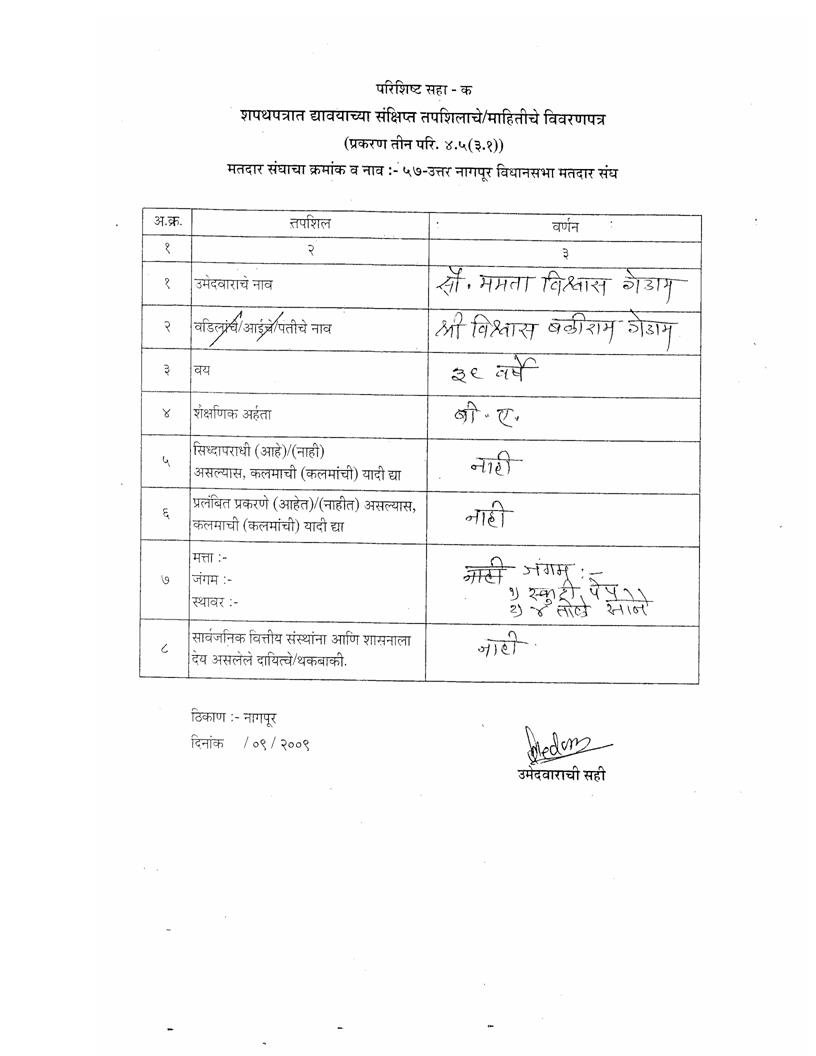 परिशिष्ट सहा - क
शपथपत्रात द्यावयाच्या संक्षिप्त तपशिलाचे/माहितीचे विवरणपत्र
(प्रकरण तीन परि. ४.५(३.१))
मतदार संघाचा क्रमांक व नाव :- ५७-उत्तर नागपूर विधानसभा मतदार संघ
अ.क्र. तपशिल वर्णन
१ २ ३
१ उमेदवाराचे नाव सौ. ममता विश्वास गेडाम
२ वडिलांचे/आईचे/पतीचे नाव श्री विश्वास बळीराम गेडाम
३ वय ३९ वर्षे
४ शैक्षणिक अर्हता बी. ए.
५ सिध्दापराधी (आहे)/(नाही)
असल्यास, कलमाची (कलमांची) यादी द्या नाही
६ प्रलंबित प्रकरणे (आहेत)/(नाहीत) असल्यास,
कलमाची (कलमांची) यादी द्या नाही
७ मत्ता :-
जंगम :- नाही जंगम :-
१) स्कुटी पेप
स्थावर :- २) ४ तोळे सोने
८ सार्वजनिक वित्तीय संस्थांना आणि शासनाला
देय असलेले दायित्वे/थकबाकी. नाही
ठिकाण :- नागपूर
दिनांक / ०९ / २००९
उमेदवाराची सही